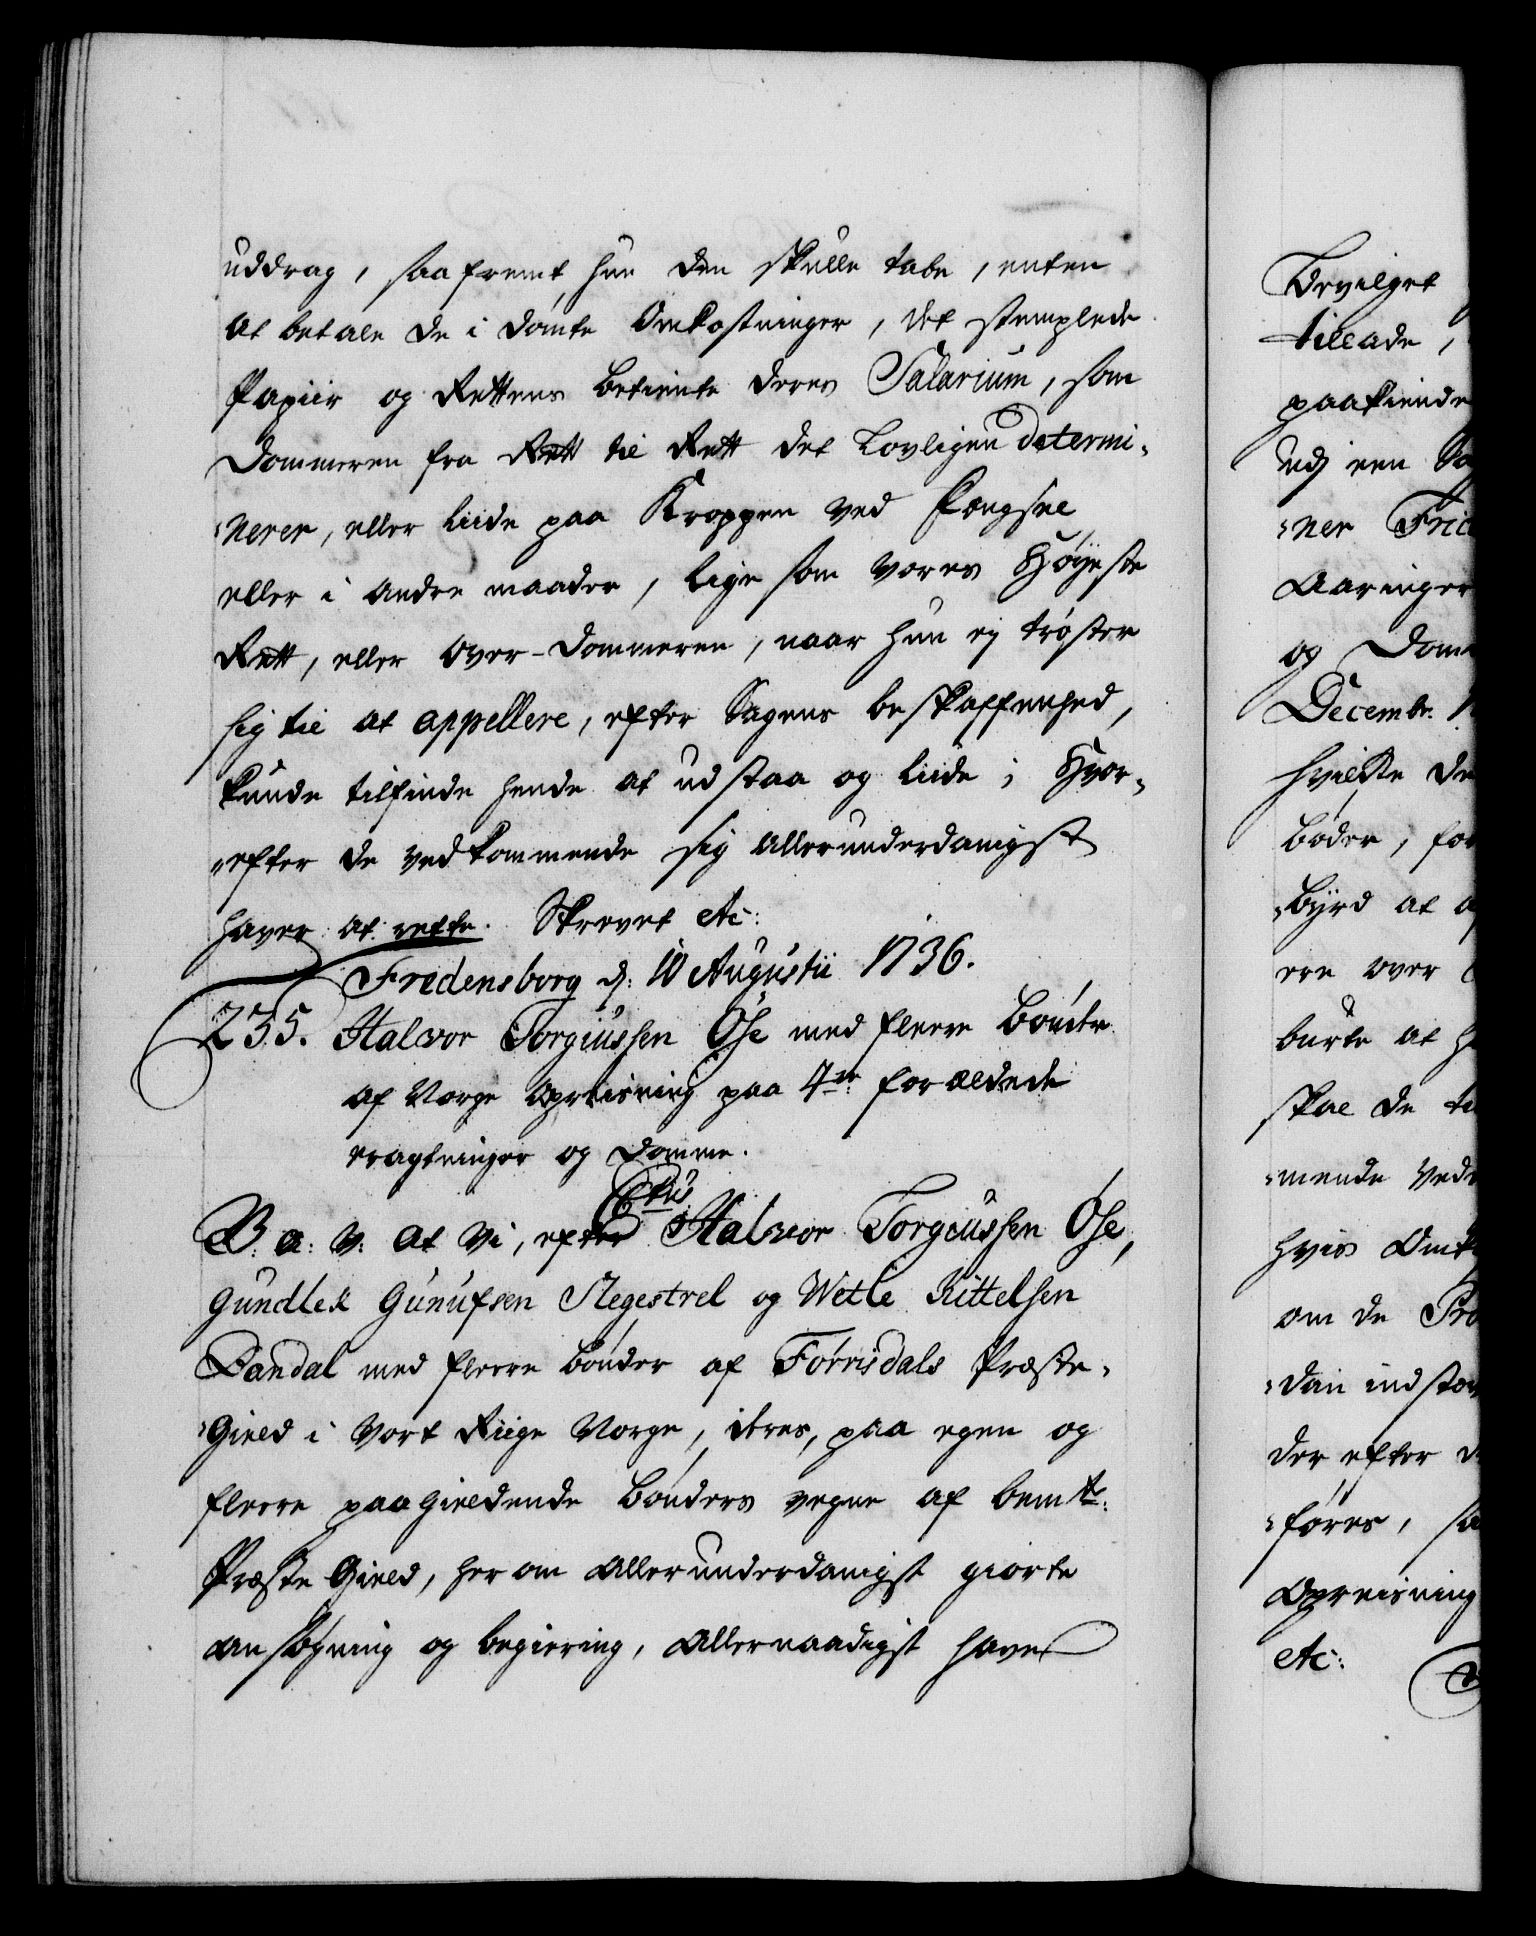 uddrag, saafremt hun den skulle tabe, enten
at betale de i dømte Omkostninger, det stemplede
Papiir og Rettens betiente deres Salarium, som
Dommeren fra Rett til Rett det Lovligen determi-
nerer, eller liide paa Kroppen ved Fængsel
eller i andre maader, lige som Vores Høyeste
Rett, eller Over-Dommeren, naar hun ej trøster
sig til at appellere, efter Sagens beskaffenhed,
kunde tilfinde hende at udstaa og liide; Hvor-
efter de vedkommende sig allerunderdanigst
haver at rette. Skrevet etc:
Fredensborg d: 10 Augustii 1736.
235. Halvor Torgiussen Øse med fleere Bønder
af Norge Opreisning paa 4re forældede
eragtninger og Domme.
B. a: V: at Vi, efter Halvor Torgiussen Øse,
Gundlek Gunufsen Slegestrel og Wetle Kittelsen
Dandal med fleere bønder af Førrisdals Præste-
Gield i Vort Riige Norge, deres, paa egen og
fleere paagieldende bønders vegne af bemte:
Præste Gield, her om allerunderdanigst giorte
ansøgning og begiering, allernaadigst haver
Bevilget
tillade,
paakiende
udj een
ner
Aaringer
og
Decembr.
hvilke
bøder, for
Byrd at
ere over
burte at
skal de
mende
hvis
om de
dan indstæv
der efter
føres,
Opreisning
etc: